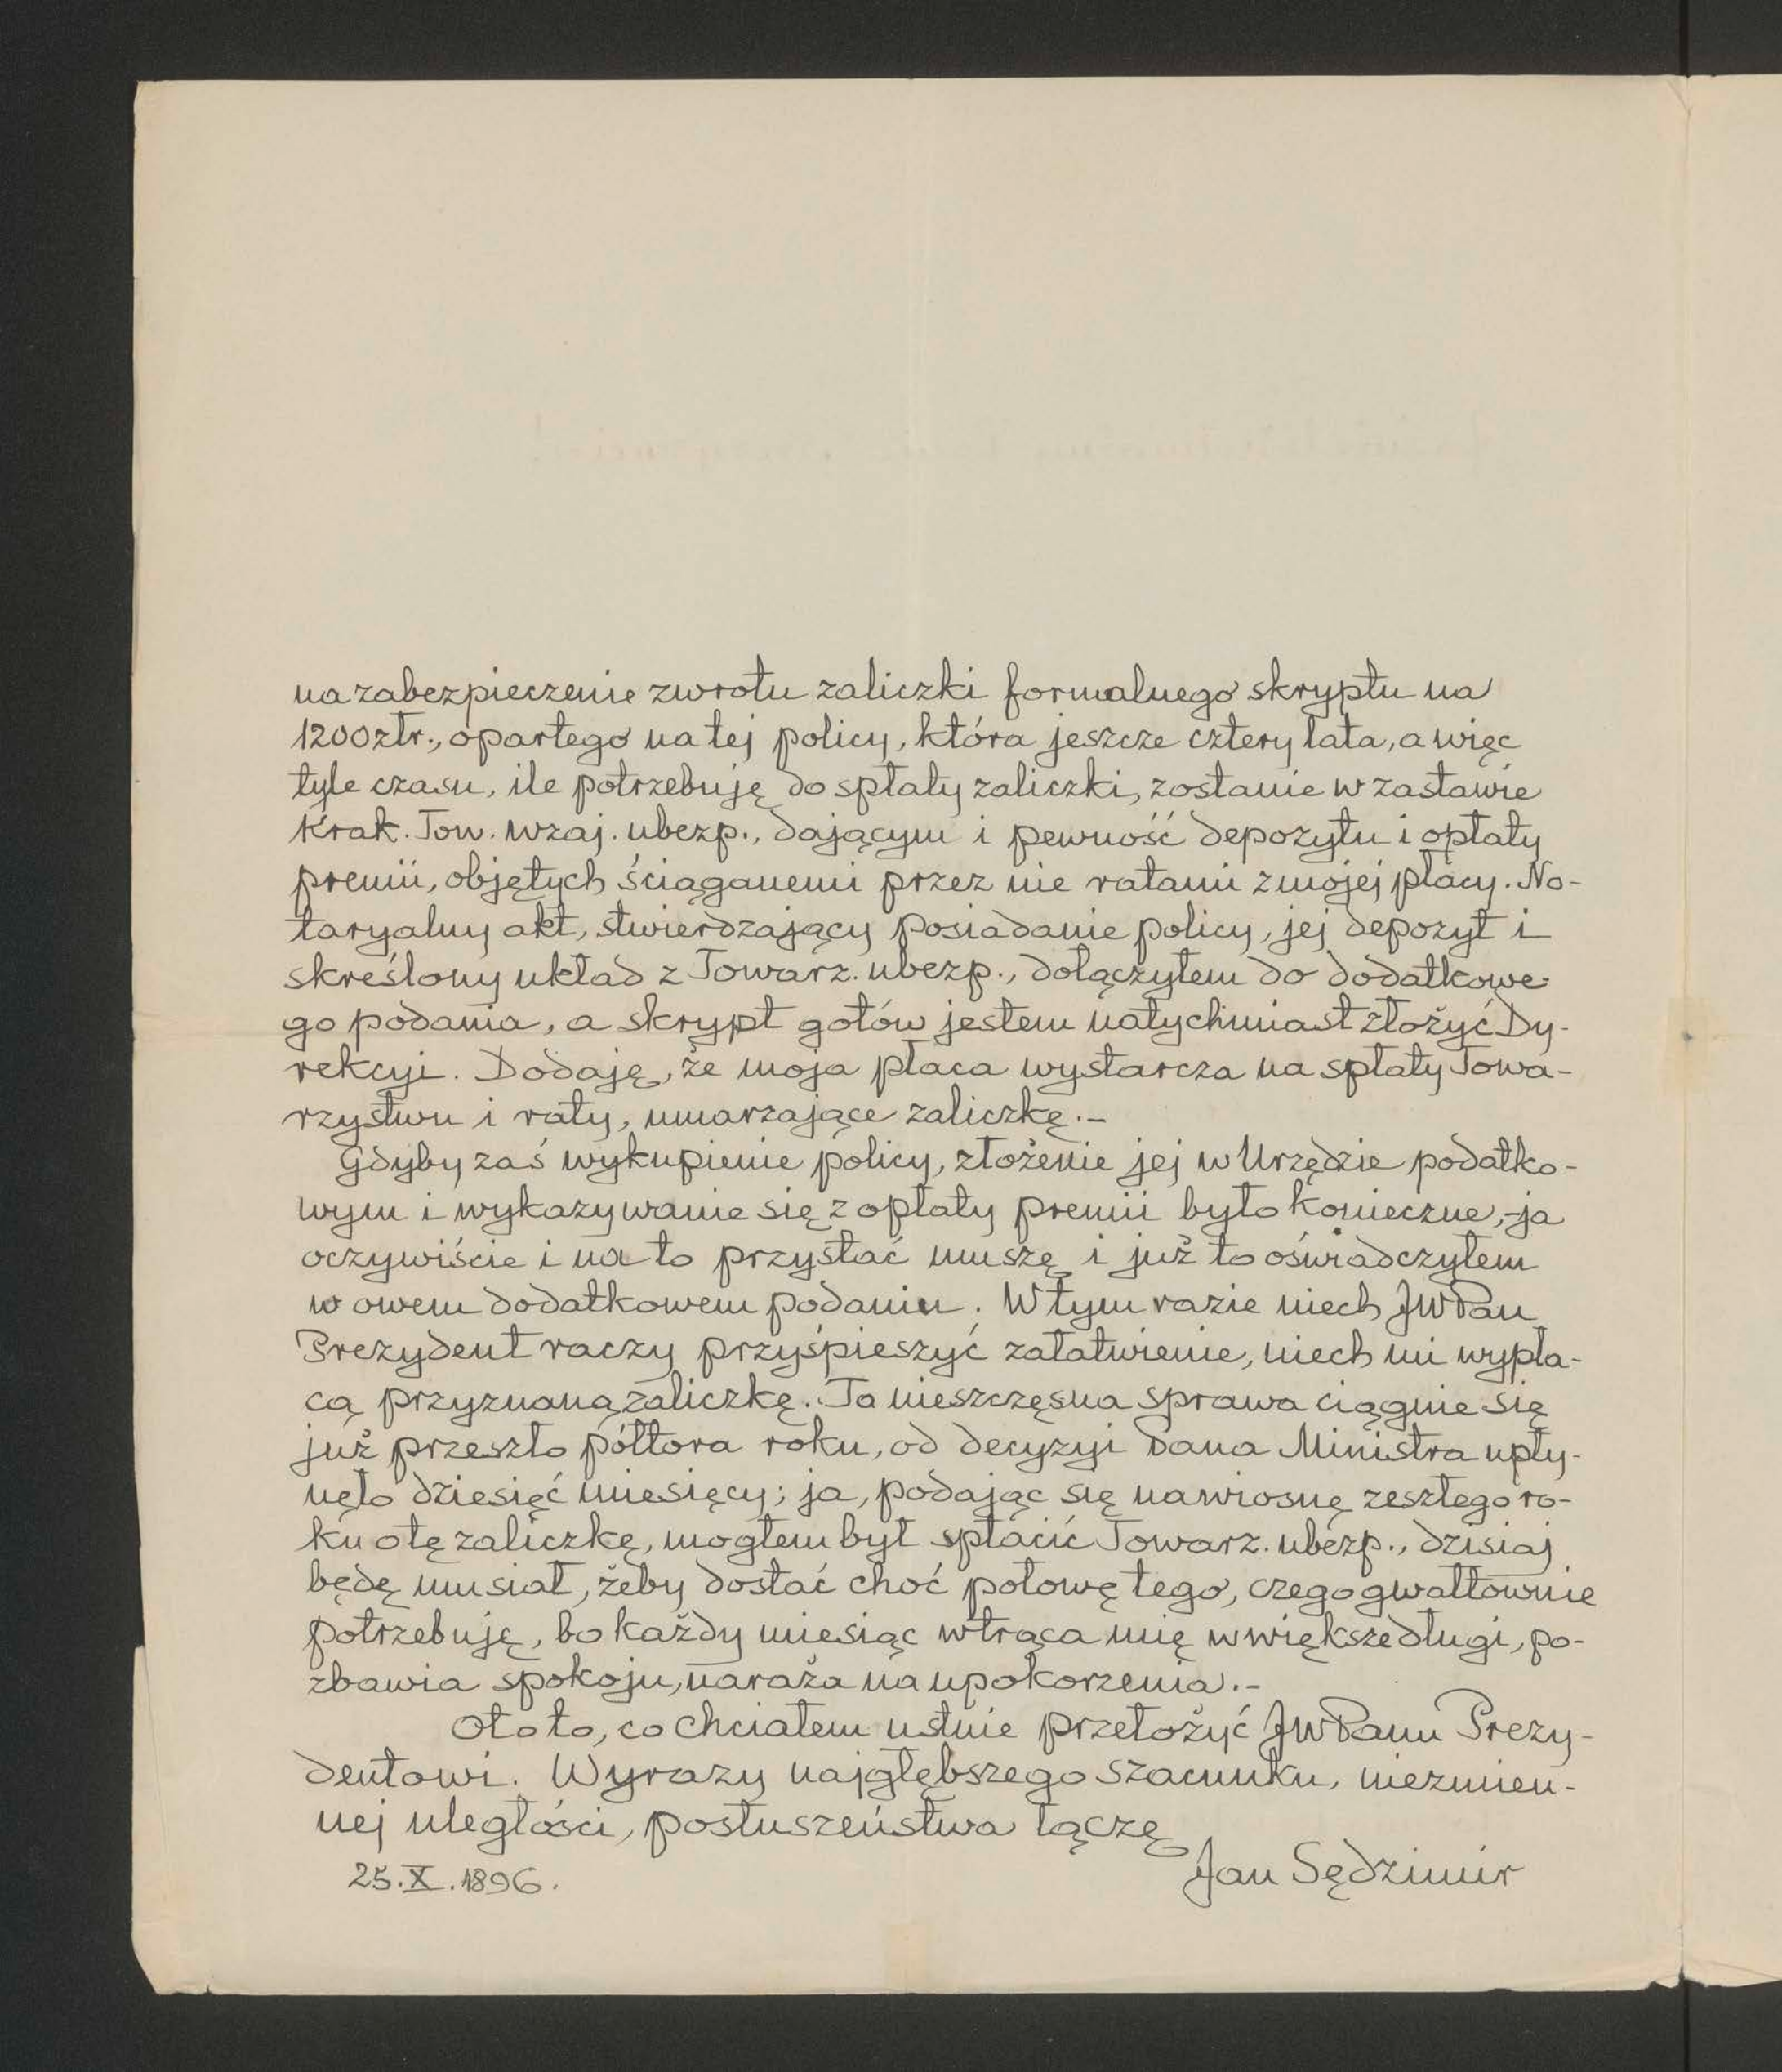 na zabezpieczenie zwrotu zaliczki formalnego skryptu na
1200 złr., opartego na tej policy, która jeszcze cztery lata, a więc
tyle czasu, ile potrzebuję do spłaty zaliczki, zostanie w zastawie
Krak. Tow. wzaj. ubezp., dającym i pewność depozytu i opłaty
premii, objętych ściąganemi przez nie ratami z mojej płacy. No-
taryalny akt, stwierdzający posiadanie policy, jej depozyt i
skreślony układ z Towarz. ubezp., dołączyłem do dodatkowe-
go podania, a skrypt gotów jestem natychmiast złożyć Dy-
rekcyi. Dodaję, że moja płaca wystarcza na spłaty Towa-
rzystwu i raty, umarzające zaliczkę.-
Gdyby zaś wykupienie policy, złożenie jej w Urzędzie podatko-
wym i wykazywanie się z opłaty premii było konieczne,-ja
oczywiście i na to przystać muszę i już to oświadczyłem
w owem dodatkowem podaniu. W tym razie niech JWPan
Prezydent raczy przyśpieszyć załatwienie, niech mi wypła-
cą przyznaną zaliczkę. Ta nieszczęsna sprawa ciągnie się
już przeszło półtora roku, od decyzyi Pana Ministra upły-
nęło dziesięć miesięcy; ja, podając się na wiosnę zeszłego ro-
ku o tę zaliczkę, mogłem był spłacić Towarz. ubezp., dzisiaj
będę musiał, żeby dostać choć połowę tego, czego gwałtownie
potrzebuję, bo każdy miesiąc wtrąca mię w większe długi, po-
zbawia spokoju, naraża na upokorzenia.-
Oto to, co chciałem ustnie przełożyć JWPanu Prezy-
dentowi. Wyrazy najgłębszego szacunku, niezmien-
nej uległości, posłuszeństwa łączę
Jan Sędzimir
25.X.1896.